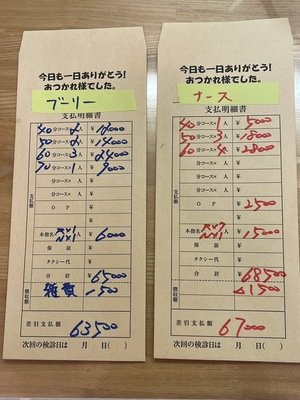 今日も一日ありがとう!
おつかれ様でした。
ブーリー
支払明細書
支払額
40分コース×2人 ¥12000
50分コース×2人 ¥14000
60分コース×3人 ¥24000
70分コース×1人 ¥9000
分コース× 人 ¥
OP ¥
¥
本指名 人 ¥6000
保証 ¥
タクシー代 ¥
合計 ¥65000
徴収額
雑費 -1500
差引支払額 63500
次回の検診日は 月 日( )
今日も一日ありがとう!
おつかれ様でした。
ナース
支払明細書
支払額
40分コース×1人 ¥5000
50分コース×3人 ¥18000
60分コース×4人 ¥28000
分コース× 人 ¥
分コース× 人 ¥
OP ¥2500
¥
本指名 人 ¥15000
保証 ¥
タクシー代 ¥
合計 ¥68500
徴収額
△1500
差引支払額 67000
次回の検診日は 月 日( )